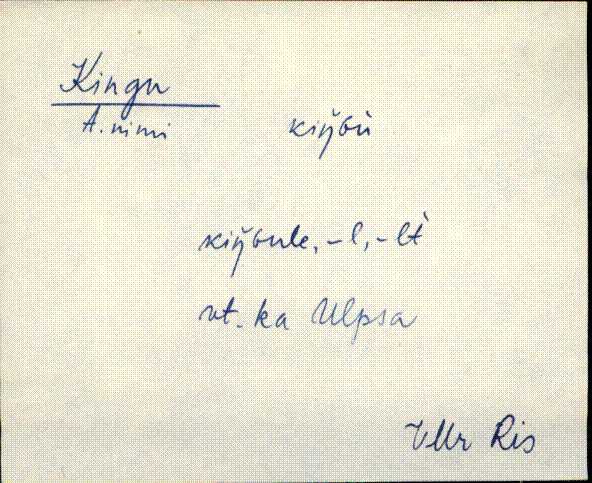 Kingu
A. nimi kiŋ̆ɢù
kiŋ̆ɢule, -l, -lt̀
vt. ka Ulpsa
Ris